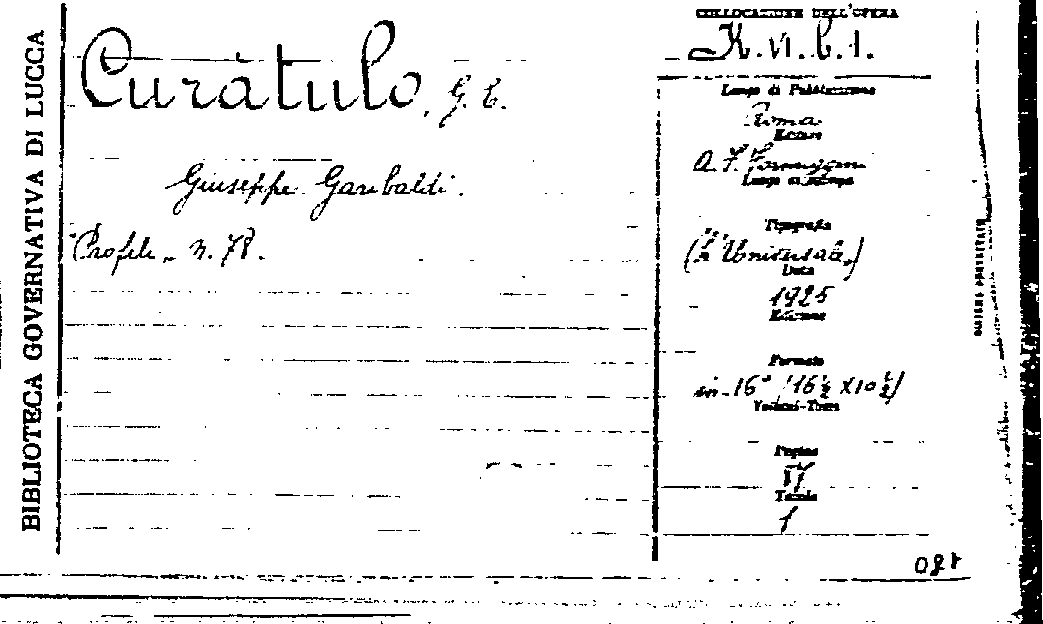 BIBLIOTECA GOVERNATIVA DI LUCCA
Curàtulo, G. E.
Giuseppe Garibaldi.
Profili - n. 78.
COLLOCAZIONE DELL'OPERA
K.VI.b.1.
Luogo di Pubblicazione
Roma
Editore
A. F. Formiggini
Luogo di Stampa
Tipografia
("L'Universale")
Data
1925
Edizione
Formato
in-16° (16½ X10½)
Volumi-Tomi
Pagine
Tavole
1